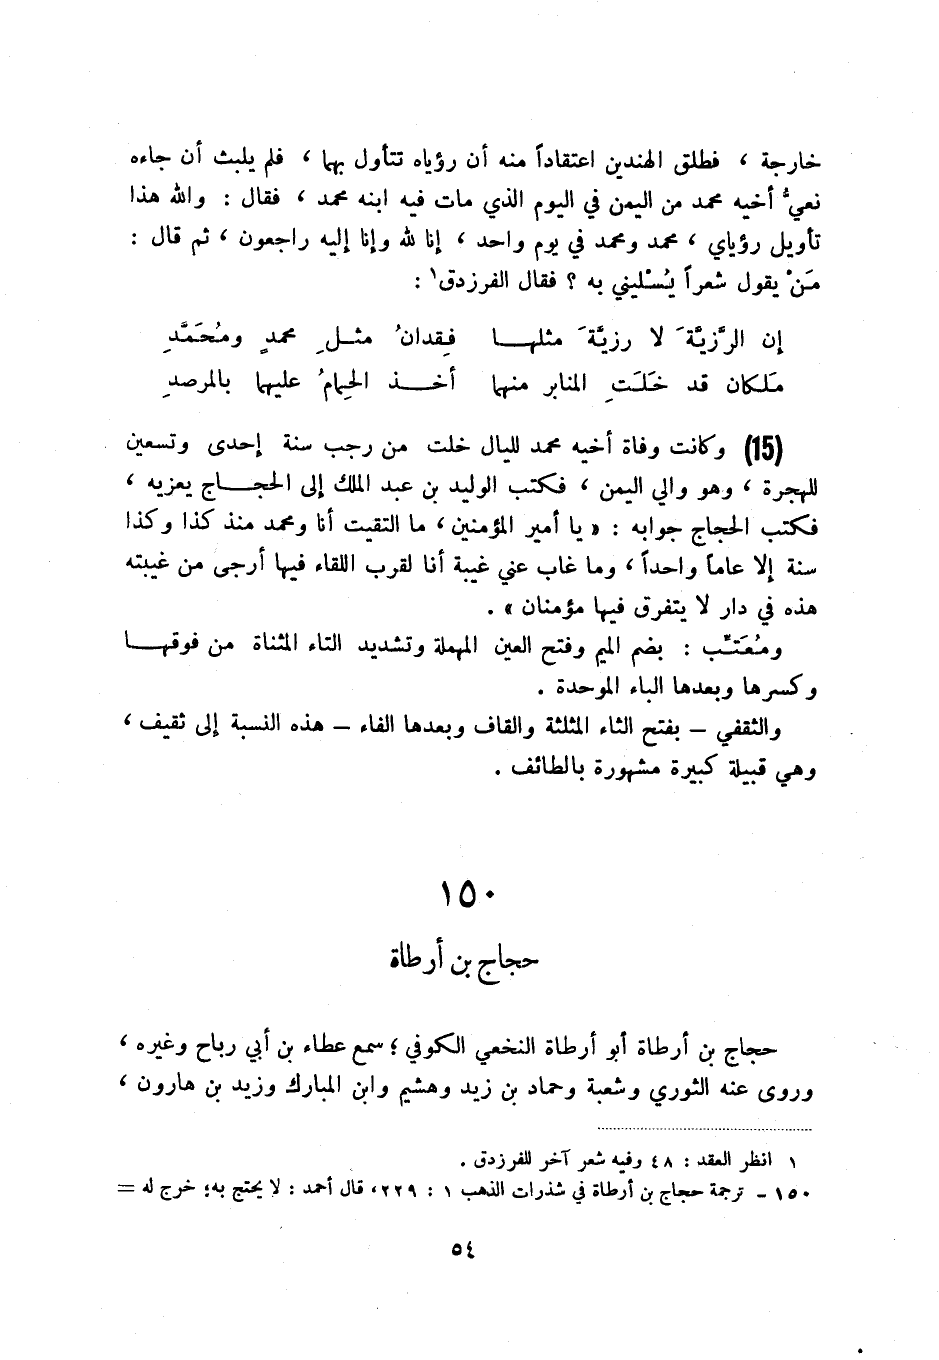 خارجة ، فطلق الهندين اعتقاداً منه أن رؤياه تتأول بهما ، فلم يلبث أن جاءه
نعيُّ أخيه محمد من اليمن في اليوم الذي مات فيه ابنه محمد ، فقال : والله هذا
تأويل رؤياي ، محمد ومحمد في يوم واحد ، إنا لله وإنا إليه راجعون ، ثم قال :
مَنْ يقول شعراً يُسْليني به ؟ فقال الفرزدق١ :
إن الرَّزيَّةَ لا رزيَّةَ مثلهـــا فِقدانُ مثـــلِ محمدٍ ومُحَمَّدِ
مَلَكان قد خَلَتِ المنابر منهما أخـــذ الحِمامُ عليهما بالمرصدِ
(15) وكانت وفاة أخيه محمد لليال خلت من رجب سنة إحدى وتسعين
للهجرة ، وهو والي اليمن ، فكتب الوليد بن عبد الملك إلى الحجـــاج يعزيه ،
فكتب الحجاج جوابه : « يا أمير المؤمنين ، ما التقيت أنا ومحمد منذ كذا وكذا
سنة إلا عاماً واحداً ، وما غاب عني غيبة أنا لقرب اللقاء فيها أرجى من غيبته
هذه في دار لا يتفرق فيها مؤمنان » .
ومُعَتِّب : بضم الميم وفتح العين المهملة وتشديد التاء المثناة من فوقهـــا
وكسرها وبعدها الباء الموحدة .
والثقفي – بفتح الثاء المثلثة والقاف وبعدها الفاء – هذه النسبة إلى ثقيف ،
وهي قبيلة كبيرة مشهورة بالطائف .
١٥٠
حجاج بن أرطاة
حجاج بن أرطاة أبو أرطاة النخعي الكوفي ؛ سمع عطاء بن أبي رباح وغيره ،
وروى عنه الثوري وشعبة وحماد بن زيد وهشيم وابن المبارك وزيد بن هارون ،
١ انظر العقد : ٤٨ وفيه شعر آخر للفرزدق .
١٥٠ – ترجمة حجاج بن أرطاة في شذرات الذهب ١ : ٢٢٩، قال أحمد : لا يحتج به؛ خرج له =
٥٤